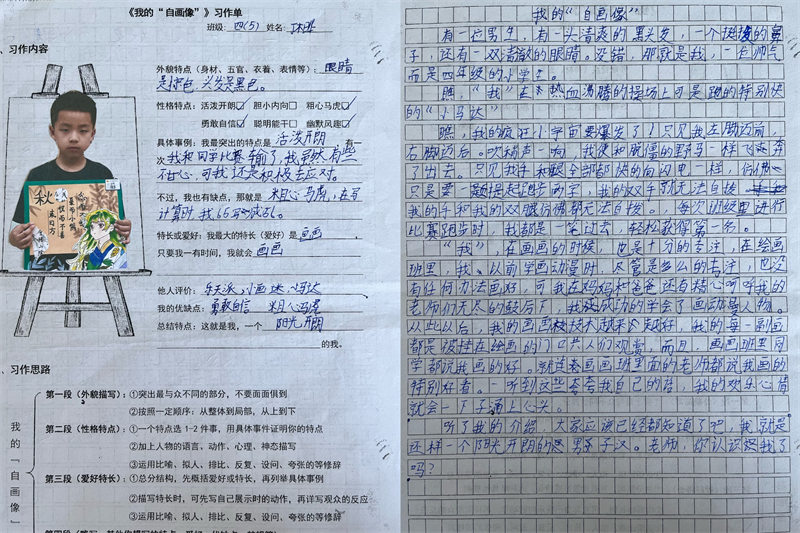 《我的“自画像”》习作单
班级：四(5) 姓名：
、习作内容
外貌特点（身材、五官、衣着、表情等）：眼睛
是棕色，头发是黑色。
性格特点：活泼开朗☑ 胆小内向☐ 粗心马虎☑
勇敢自信☑ 聪明能干☐ 幽默风趣☑
具体事例：我最突出的特点是 活泼开朗
次我和同学比赛输了，我虽然有些
甘心，可我还是积极去应对。
不过，我也有缺点，那就是 粗心马虎，在写
计算时，我65写成
特长或爱好：我最大的特长（爱好）是画画
只要我一有时间，我就会 画画
他人评价：乐天派，小画迷，小马达
我的优缺点：勇敢自信 粗心马虎
总结特点：这就是我，一个 阳光开朗
的我。
秋
、习作思路
我的「自画像」
第一段（外貌描写）：①突出最与众不同的部分，不要面面俱到
②按照一定顺序：从整体到局部，从上到下
第二段（性格特点）：①一个特点选 1-2 件事，用具体事件证明你的特点
②加上人物的语言、动作、心理、神态描写
③运用比喻、拟人、排比、反复、设问、夸张的等修辞
第三段（爱好特长）：①总分结构，先概括爱好或特长，再列举具体事例
②描写特长时，可先写自己展示时的动作，再详写观众的反应
③运用比喻、拟人、排比、反复、设问、夸张的等修辞
我的“自画像”
有一位男生，有一头清爽的黑头发，一个挺拔的鼻
子，还有一双清澈的眼睛。没错，那就是我，一台帅气
而是四年级的小学生。
瞧，“我”在热血沸腾的操场上可是跑的特别快
的“小马达”
瞧，我的疯狂小宇宙要爆发了！只见我左脚迈前，
右脚迈后。吹稍声一响，我便和脱僵的野马一样飞奔
了出去。只见我手和腿全部都快的向闪电一样，仿佛
只是要一提起跑步两字，我的双手都无法自拨。
我的手和我的双腿仿佛都无法自拨。每次训练里进行
比赛跑步时，我都是一笔过去，轻松获得第一名。
“我”，在画画的时候，也是十分的专注，在绘画
班里，我以前学画动漫时，尽管是怎么的专注，也没
有任何办法画好，可我在妈妈和爸爸还有精心呵呵我的
老师们无尽的鼓后下，我还成功的学会了画动曼人物。
从此以后，我的画画技大越来越好，我的每一副画
都是被挂在绘画的门口共人们观赏。而且，画画班里同
学都说我画的好。就连套画画班里面的老师都说我画的
特别好看。一听到这些夸夸我自己的话，我的欢乐心情
就会一下子涌上心头。
听了我的介绍，大家应该已经都知道了吧，我就是
这样一个阳光开朗的男子汉。老师，你认识我了
吗？